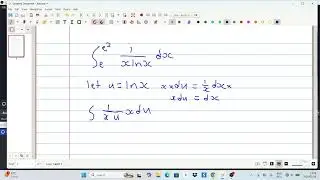 ∫ₑ^{e²} 1/(x ln x) dx
let u = ln x   x × du = 1/x dx ×
x du = dx
∫ 1/(x u) x du